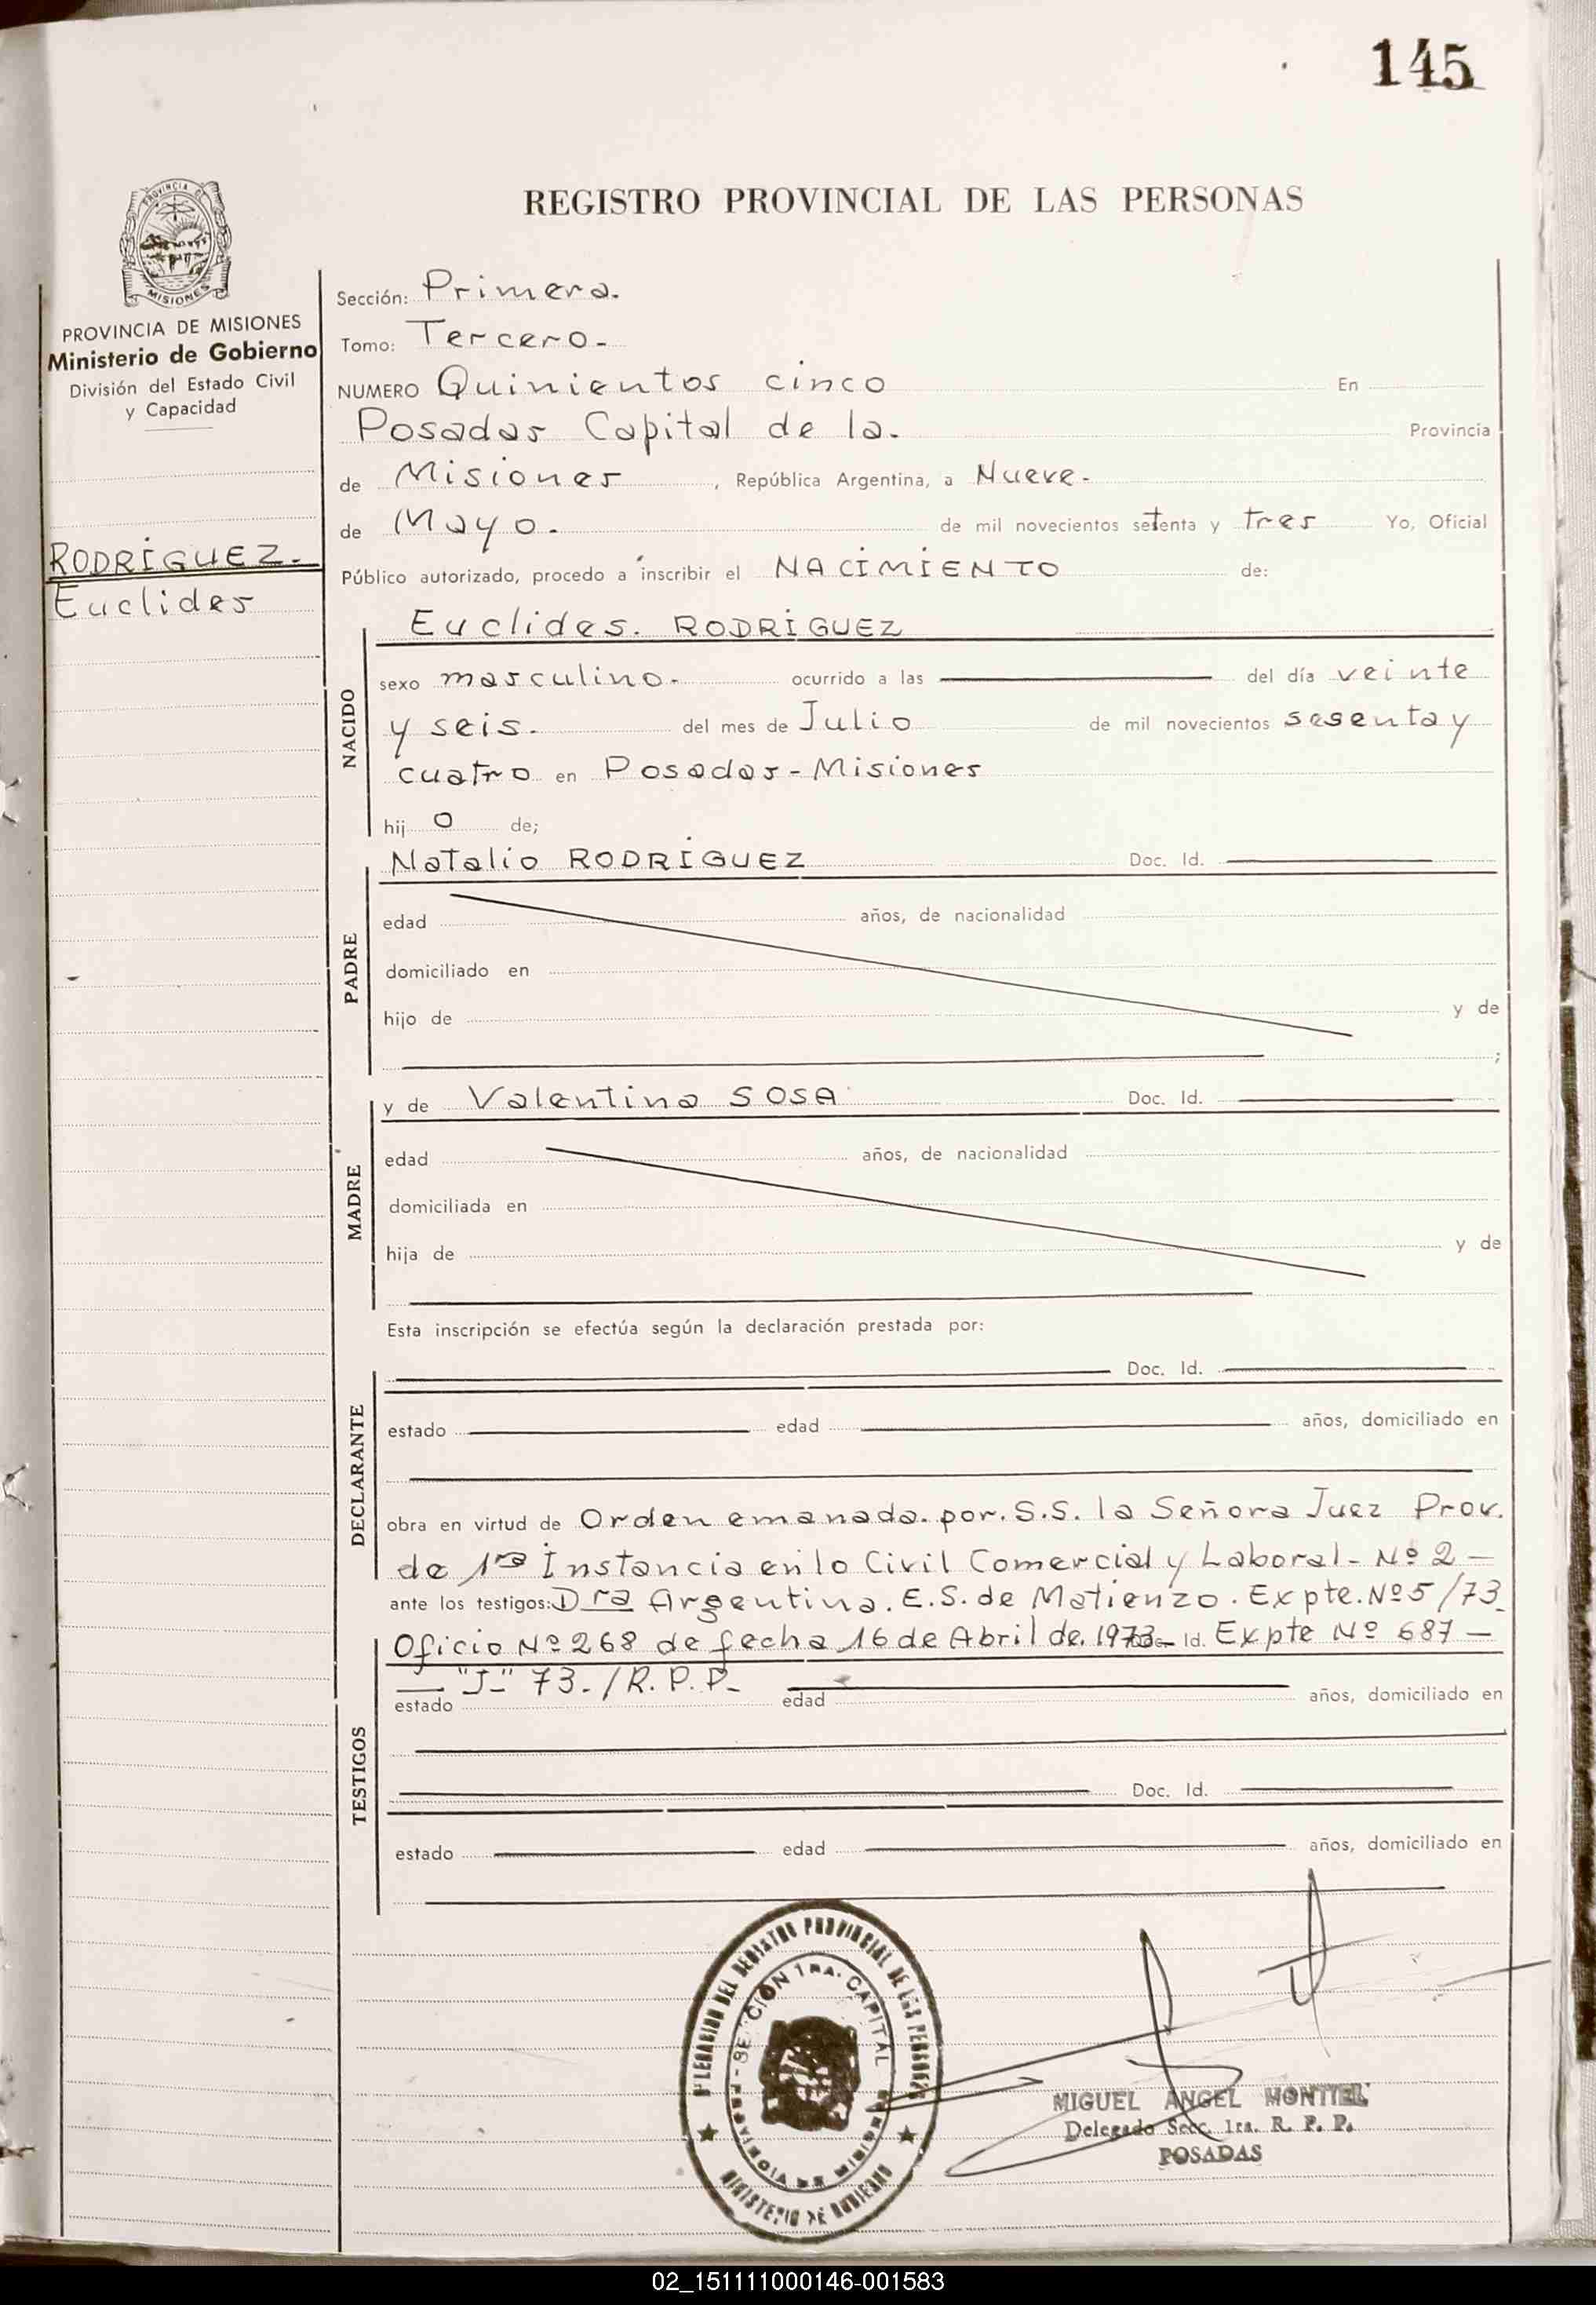 145
REGISTRO PROVINCIAL DE LAS PERSONAS
PROVINCIA DE MISIONES
PROVINCIA DE MISIONES
Ministerio de Gobierno
División del Estado Civil
y Capacidad
RODRÍGUEZ.-
Euclides
Sección: Primera.
Tomo: Tercero.-
NUMERO Quinientos cinco En
Posadas Capital de la. Provincia
de Misiones, República Argentina, a Nueve.-
de Mayo.- de mil novecientos setenta y tres Yo, Oficial
Público autorizado, procedo a inscribir el NACIMIENTO de:
NACIDO
Euclides. RODRÍGUEZ
sexo masculino.- ocurrido a las del día veinte
y seis.- del mes de Julio de mil novecientos sesenta y
cuatro en Posadas-Misiones
hij o de;
PADRE
Natalio RODRÍGUEZ Doc. Id.
edad años, de nacionalidad
domiciliado en
hijo de y de
;
MADRE
y de Valentina SOSA Doc. Id.
edad años, de nacionalidad
domiciliada en
hija de y de
Esta inscripción se efectúa según la declaración prestada por:
DECLARANTE
Doc. Id.
estado edad años, domiciliado en
obra en virtud de Orden emanada. por. S.S. la Señora Juez Prov.
de 1ra Instancia en lo Civil Comercial y Laboral- Nº 2 -
ante los testigos: Dra Argentina. E.S. de Matienzo. Expte. Nº 5/73
Oficio Nº 268 de fecha 16 de Abril de. 1973- Id. Expte Nº 687 -
- "J-" 73.-/R.P.P.-
TESTIGOS
estado edad años, domiciliado en
Doc. Id.
estado edad años, domiciliado en
DELEGACION DEL REGISTRO PROVINCIAL DE LAS PERSONAS
SECCION 1RA. CAPITAL
PROVINCIA DE MISIONES
MINISTERIO DE GOBIERNO
MIGUEL ANGEL MONTIEL
Delegado Secc. 1ra. R. P. P.
POSADAS
02_151111000146-001583